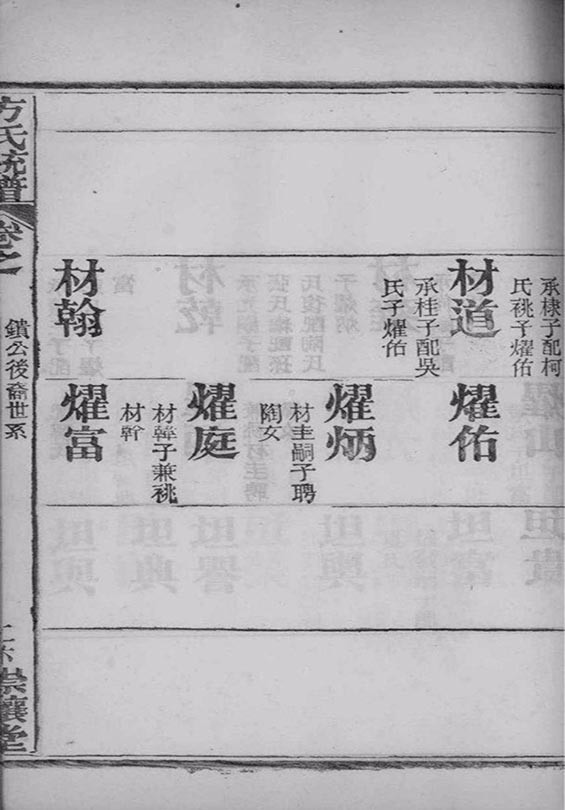 承棣子配柯
氏祧子燿佑
材道
承桂子配吳
氏子燿佑
材翰
燿佑
燿炳
材圭嗣子聘
陶女
燿庭
子兼祧
燿富
方氏統譜
卷之
鎖公後裔世系
崇讓堂